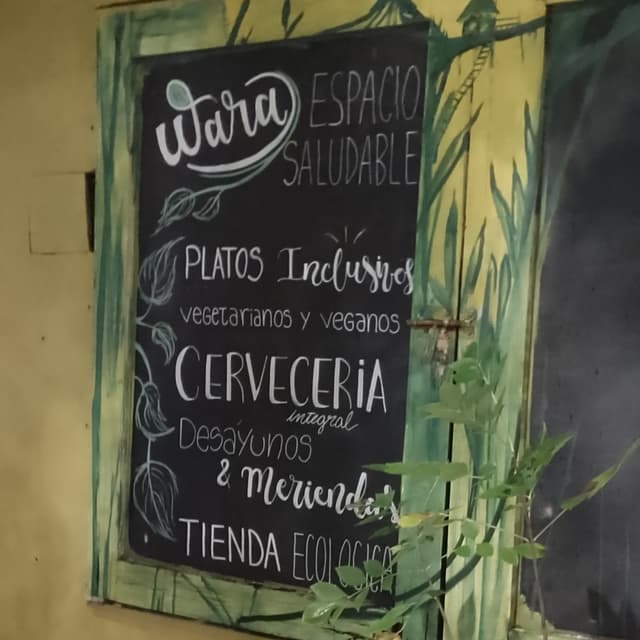 Wara ESPACIO
SALUDABLE
PLATOS Inclusivos
vegetarianos y veganos
CERVECERiA
integral
Desayunos
& Meriendas
TIENDA ECOLOGICA